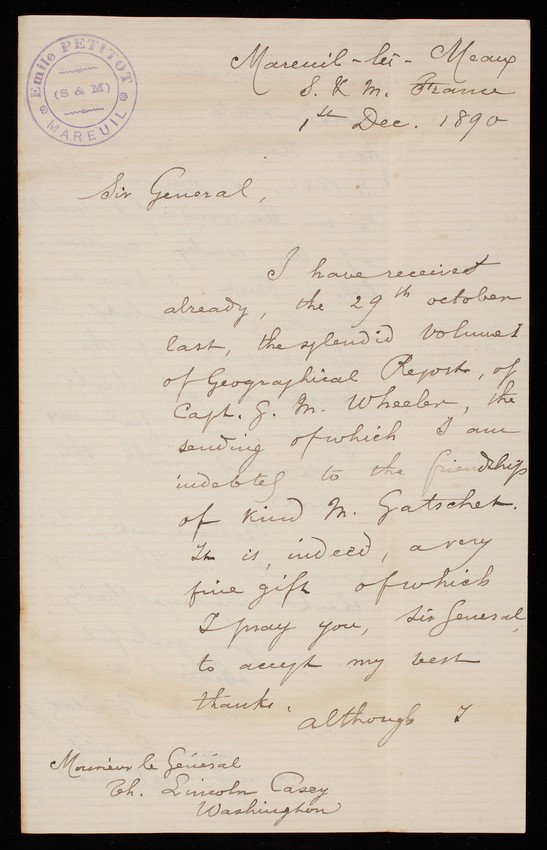 Emile PETITOT
(S & M)
MAREUIL
Mareuil-lès-Meaux
S. & M. France
1st Dec. 1890
Sir General,
I have received
already, the 29th october
last, the splendid Volume I
of Geographical Report, of
Capt. G. M. Wheeler, the
sending of which I am
indebted to the friendship
of kind M. Gatschet.
It is, indeed, a very
fine gift of which
I pray you, Sir General,
to accept my best
thanks.
although I
Monsieur le Général
Th. Lincoln Casey
Washington